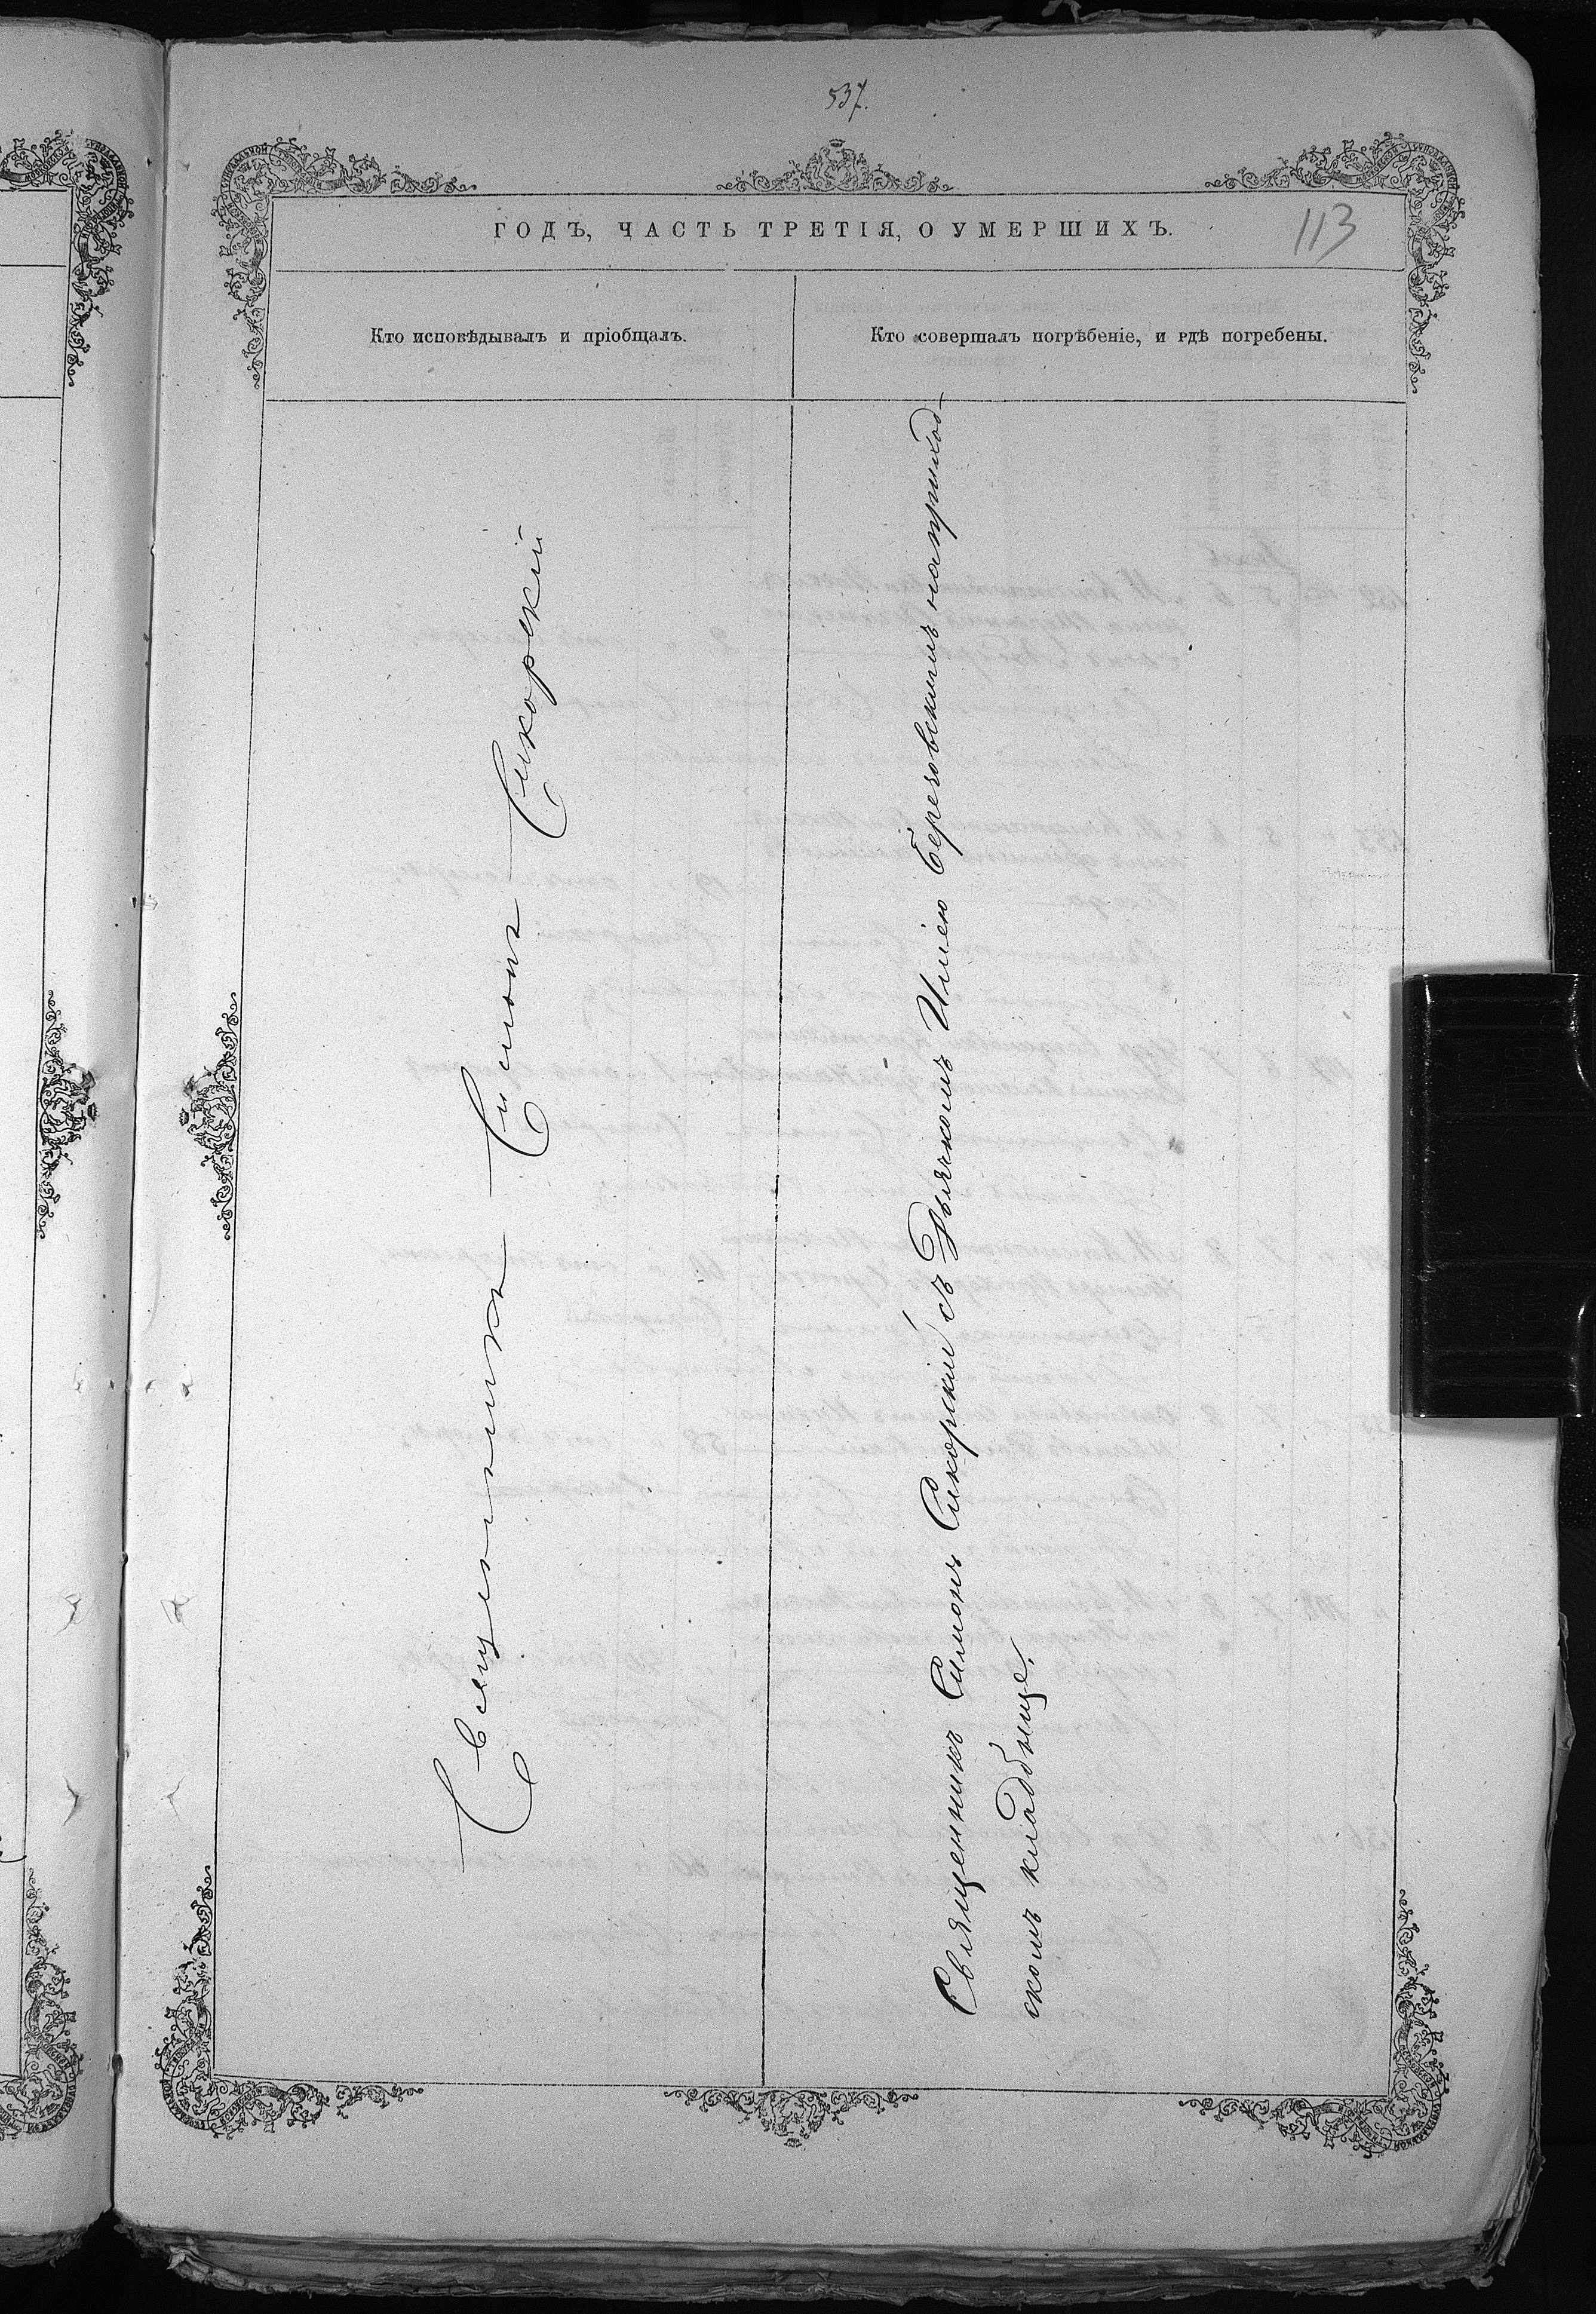 537.
ГОДЪ, ЧАСТЬ ТРЕТІЯ, О УМЕРШИХЪ.
113
Кто исповѣдывалъ и пріобщалъ.
Кто совершалъ погрѣбеніе, и гдѣ погребены.
Священникъ Симонъ Сикорскій
Священникъ Симонъ Сикорскій съ Дьячкомъ Иліею Березовскимъ на приход-
скомъ кладбище.